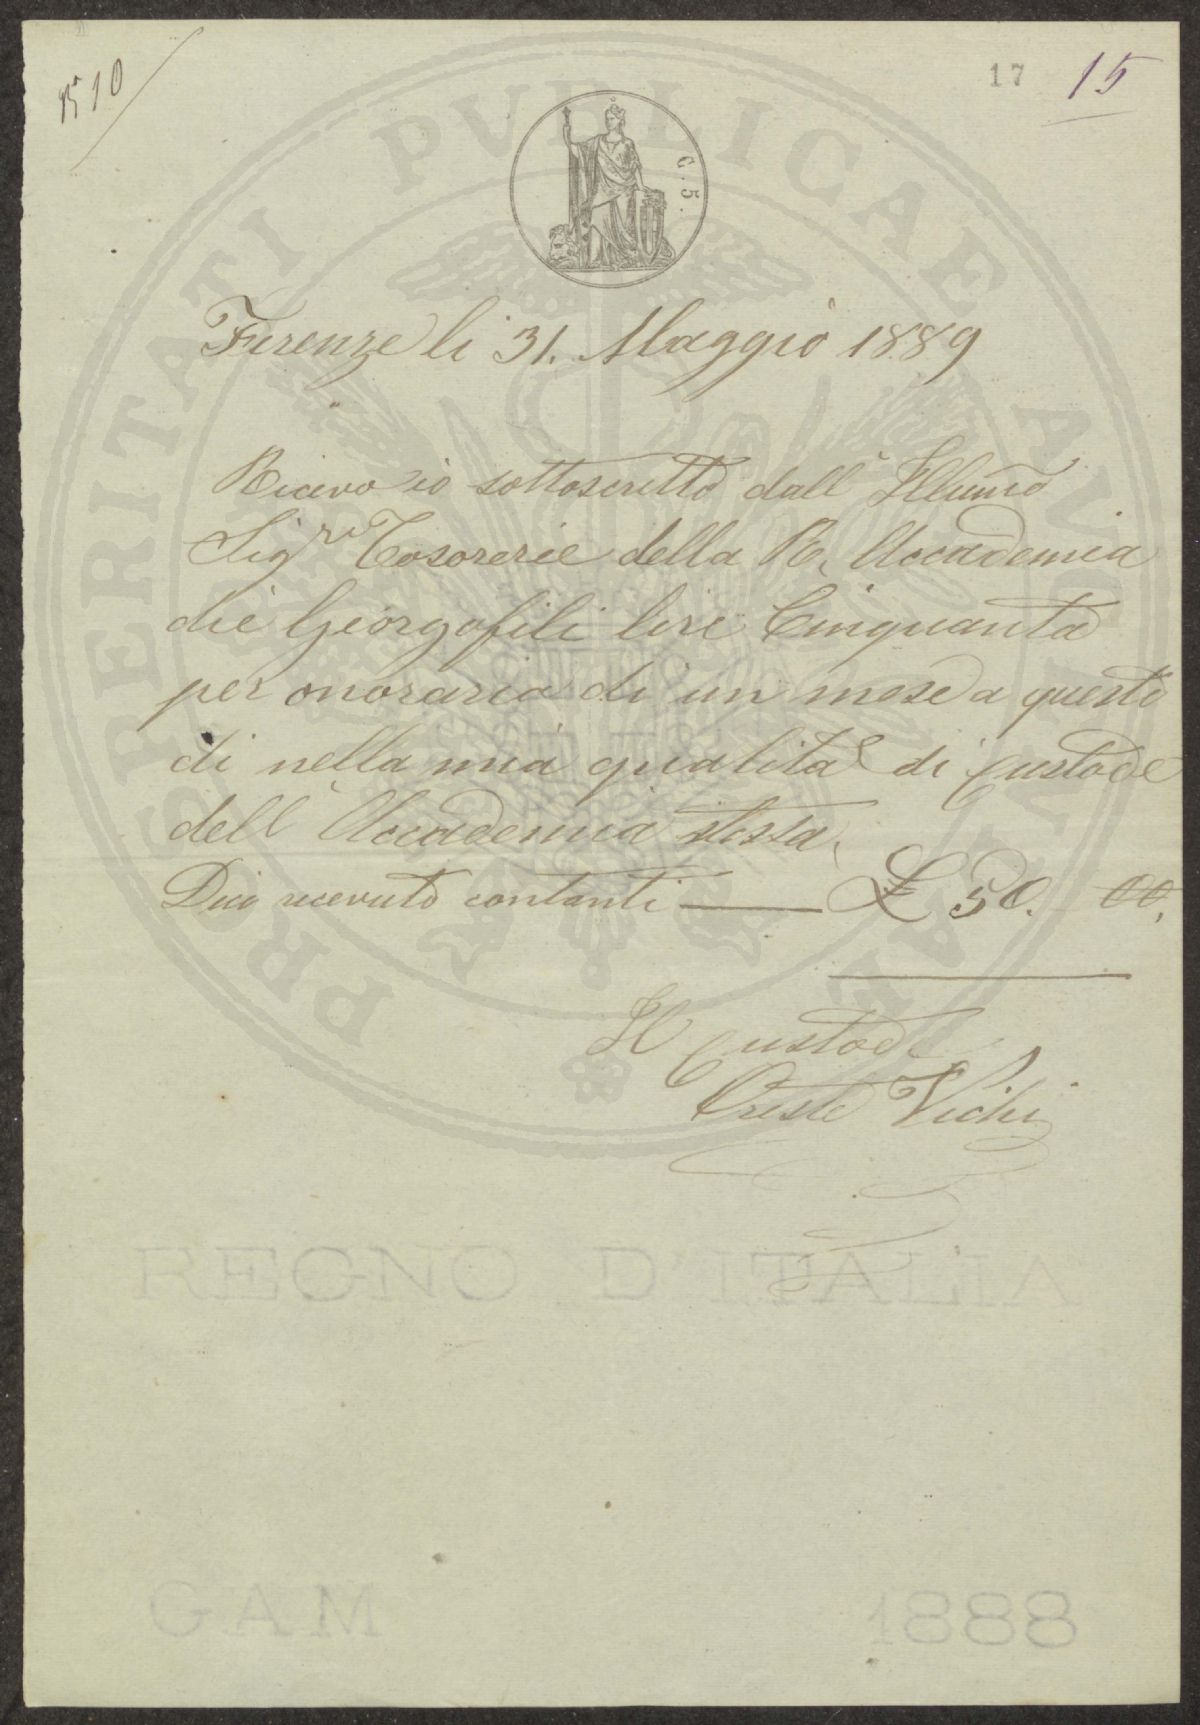 № 10
17
15
C. 5.
PROSPERITATI PVBLICAE AVGENDAE
Firenze li 31. Maggio 1889
Ricevo io sottoscritto dall' Illumo
Sigri Tosorerie della R. Accademia
dei Georgofili lire Cinquanta
per onoraria di un mese a questo
di nella mia qualità di Custode
dell' Accademia stessa.
Dico ricevuto contanti — £ 50. 00.
Il Custode
Oreste Vichi
REGNO D'ITALIA
GAM 1888